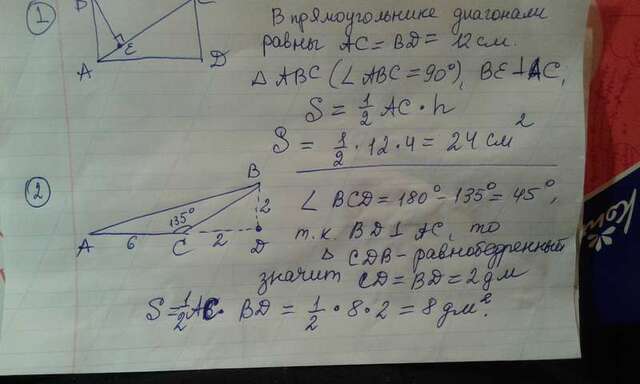 1
В прямоугольнике диагонали
равны AC = BD = 12 см.
E
A
D
Δ ABC (∠ ABC = 90°), BE ⊥ AC,
S = 1/2 AC · h
S = 1/2 · 12 · 4 = 24 см²
2
B
∠ BCD = 180° - 135° = 45°,
135°
2
т.к. BD ⊥ AC, то
A
6
C
2
D
Δ CDB - равнобедренный
значит CD = BD = 2 дм
S = 1/2 AC · BD = 1/2 · 8 · 2 = 8 дм².